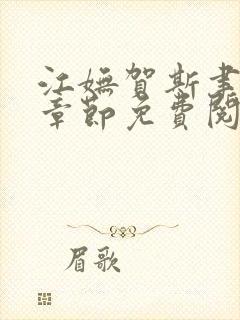 江嫵賀斯聿
章節免費閱
眉歌